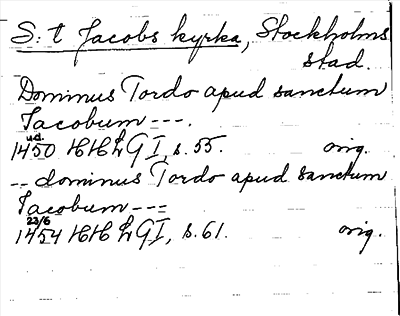 S:t Jacobs kyrka, Stockholms
stad.
Dominus Tordo apud sanctum
Jacobum ---.
u.d.
1450 HHLGI, s. 55. orig.
-- dominus Tordo apud sanctum
Jacobum ---
23/6
1454 HHLGI, s. 61. orig.